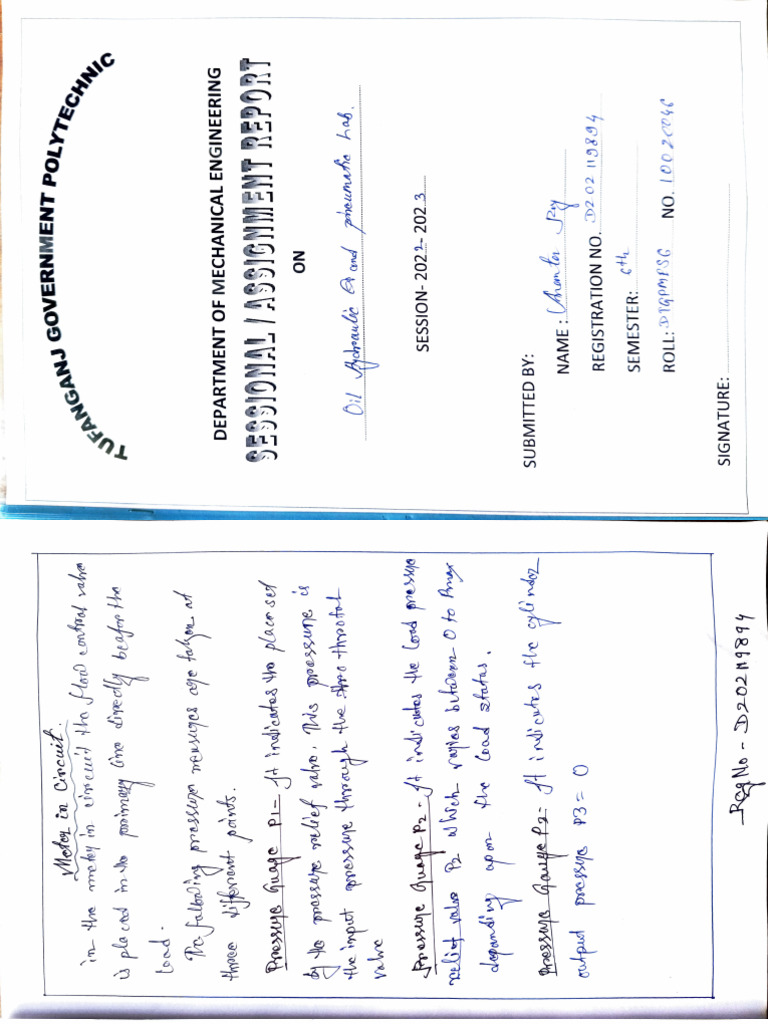 TUFANGANJ GOVERNMENT POLYTECHNIC
DEPARTMENT OF MECHANICAL ENGINEERING
SESSIONAL / ASSIGNMENT REPORT
ON
Oil Hydraulic and pneumatic Lab.
SESSION- 2022- 2023
SUBMITTED BY:
NAME : Roy
REGISTRATION NO. D202119894
SEMESTER: 6th
ROLL: DTGPMPSG NO. 10020046
SIGNATURE:
Meter in Circuit.
in the meter in circuit the flow control valve
is placed in the primary line directly beafor the
load.
The following pressure mensures are taken at
three different points.
Pressure Guage P1- It indicates the placer set
by the pressure relief valve. This pressure is
the input pressure through the throttal
valve
Pressure Guage P2- It indicates the load pressure
relief value P2 which varies between 0 to Pmax
depanding upon the load status.
Pressure Gauge P2- It indicates the cylinder
output pressure P3= 0
Reg No - D202119894